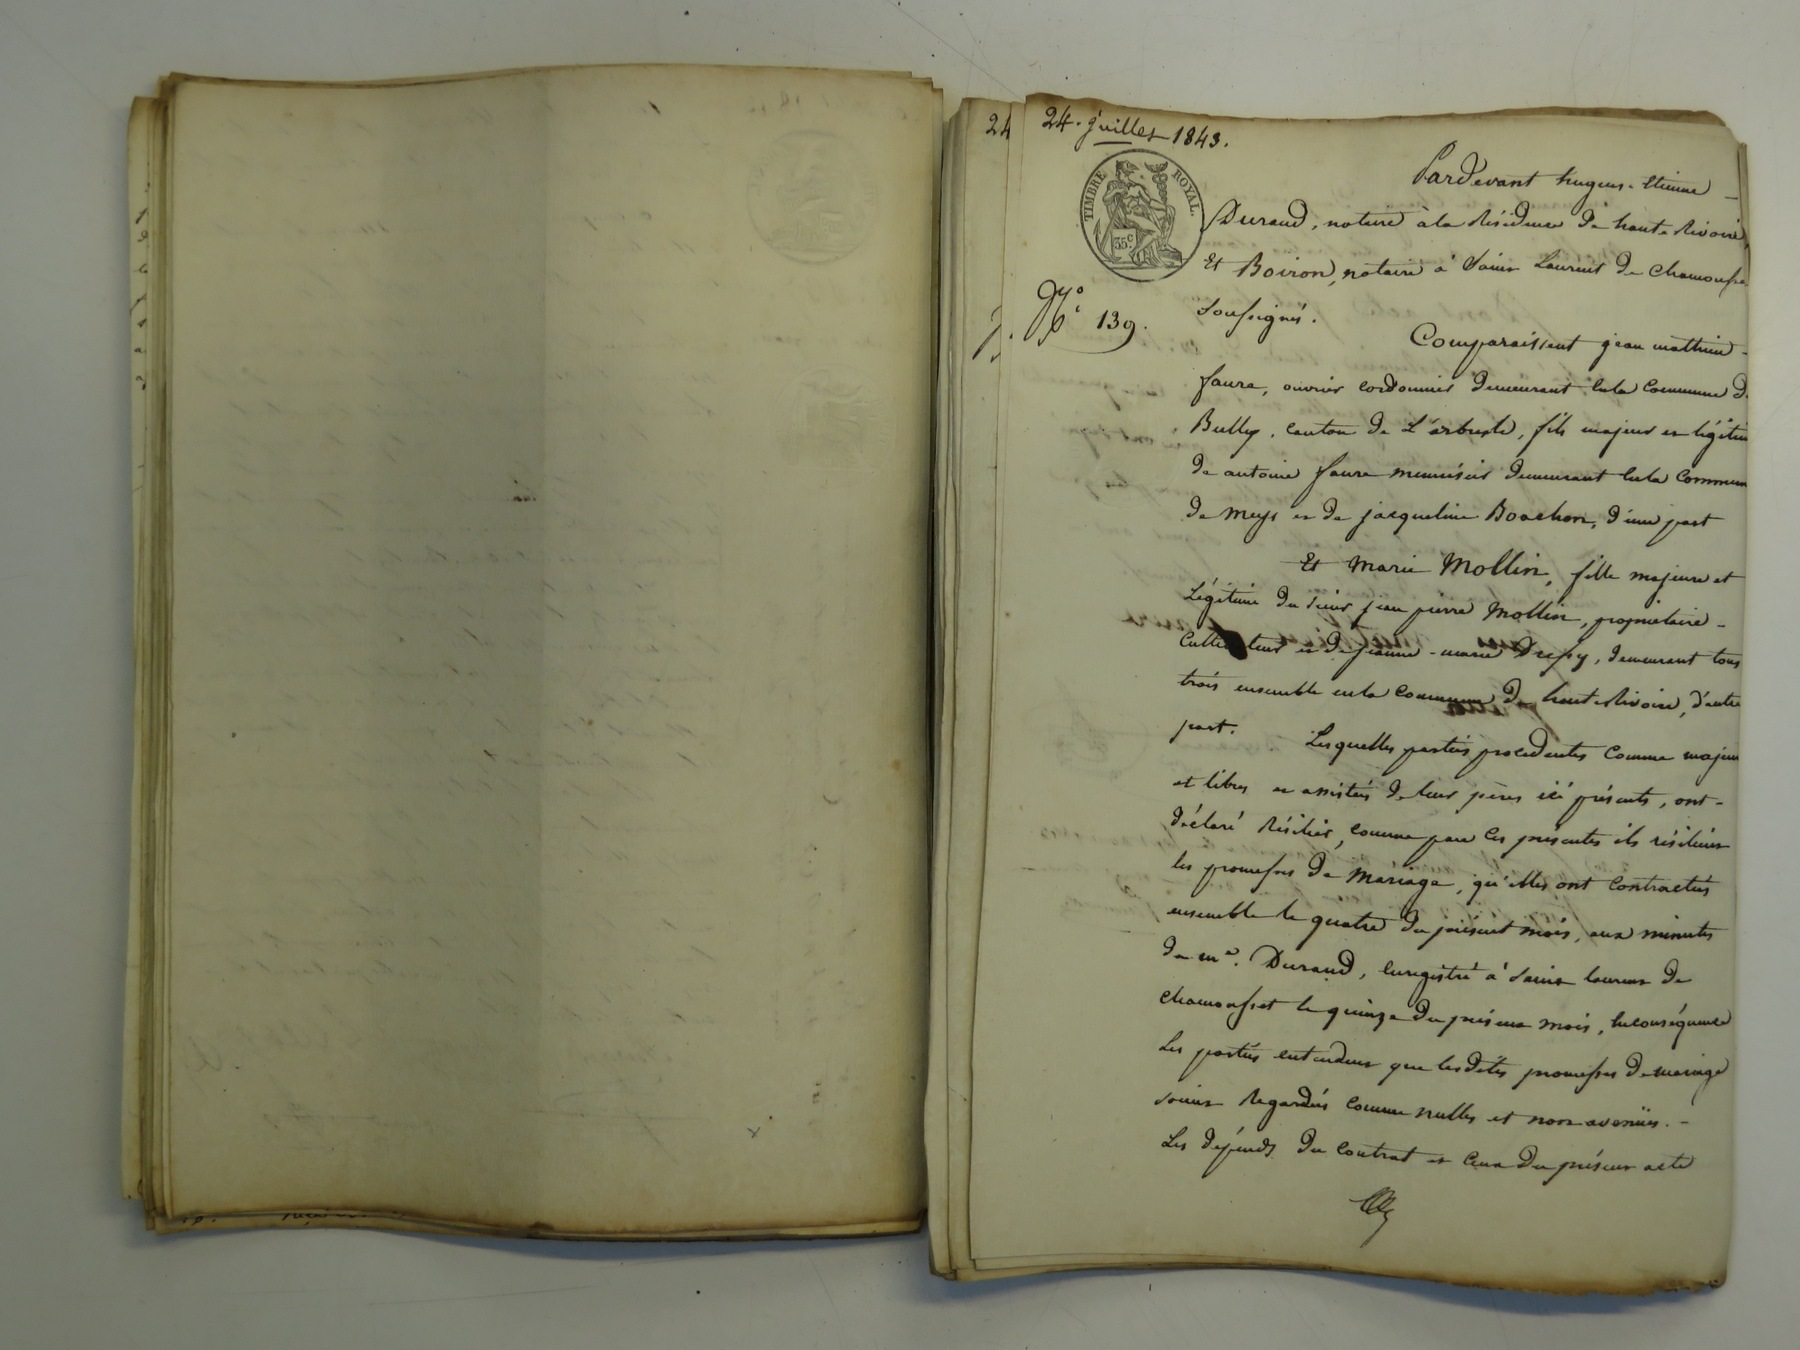 24. juillet 1843.
TIMBRE ROYAL.
35 c
Nº 139.
Pardevant hugues-Etienne
Durand, notaire à la Résidence de haute Rivoire
Et Boiron, notaire à Saint Laurent de Chamousset
soussignés.
Comparaissent jean mathieu
faure, ouvrier cordonnier demeurant en la commune de
Bully, canton de L'arbresle, fils majeur et légitime
de antoine faure menuisier demeurant en la commune
de meys et de jacqueline Bouchon, d'une part
Et Marie Mollin, fille majeure et
Légitime du sieur jean pierre Mollin, propriétaire
cultivateur et de jeanne-marie demeurant tous
trois ensemble en la commune de haute Rivoire, d'autre
part. Lesquelles parties procedentes comme majeures
et libres et assistées de leurs pères ici présents, ont
déclaré résilier, comme par ces présentes ils résilient
les promesses de Mariage, qu'elles ont contractées
ensemble le quatre du présent mois, aux minutes
de me. Durand, enregistré à saint laurent de
chamousset le quinze du présent mois, en conséquence
Les parties entendent que les dites promesses de mariage
soient Regardées comme nulles et non avenües.
Les dépends du contrat et ceux du présent acte